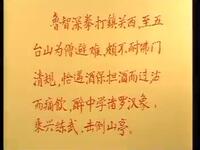 鲁智深拳打鎮关西，至五
台山为僧避难，頗不耐佛门
清規，恰遇酒保担酒而过沽
而痛飲，醉中学诸罗汉象，
乘兴练武，击倒山亭。